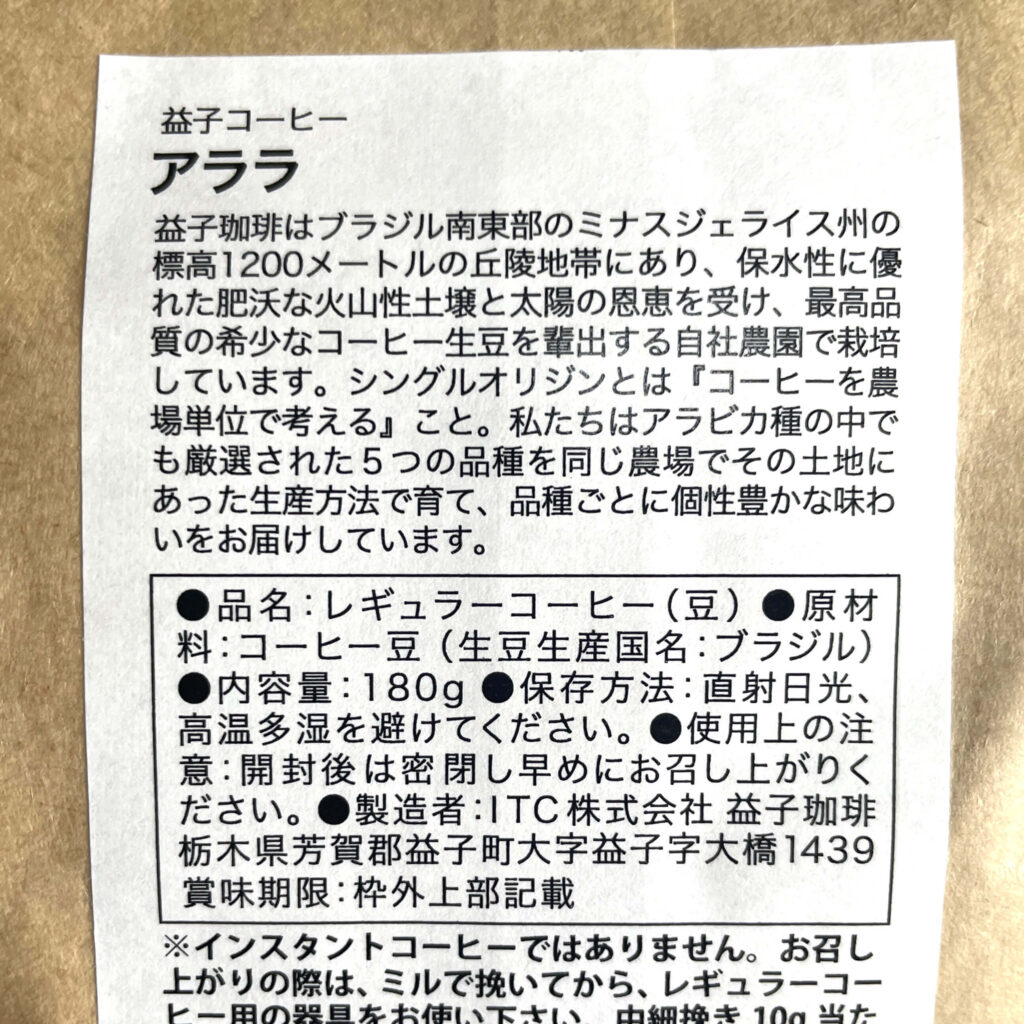 益子コーヒー
アララ
益子珈琲はブラジル南東部のミナスジェライス州の
標高1200メートルの丘陵地帯にあり、保水性に優
れた肥沃な火山性土壌と太陽の恩恵を受け、最高品
質の希少なコーヒー生豆を輩出する自社農園で栽培
しています。シングルオリジンとは『コーヒーを農
場単位で考える』こと。私たちはアラビカ種の中で
も厳選された5つの品種を同じ農場でその土地に
あった生産方法で育て、品種ごとに個性豊かな味わ
いをお届けしています。
●品名：レギュラーコーヒー（豆）●原材
料：コーヒー豆（生豆生産国名：ブラジル）
●内容量：180g ●保存方法：直射日光、
高温多湿を避けてください。●使用上の注
意：開封後は密閉し早めにお召し上がりく
ださい。●製造者：ITC株式会社 益子珈琲
栃木県芳賀郡益子町大字益子字大橋1439
賞味期限：枠外上部記載
※インスタントコーヒーではありません。お召し
上がりの際は、ミルで挽いてから、レギュラーコー
ヒー用の器具をお使い下さい。中細挽き10g当た